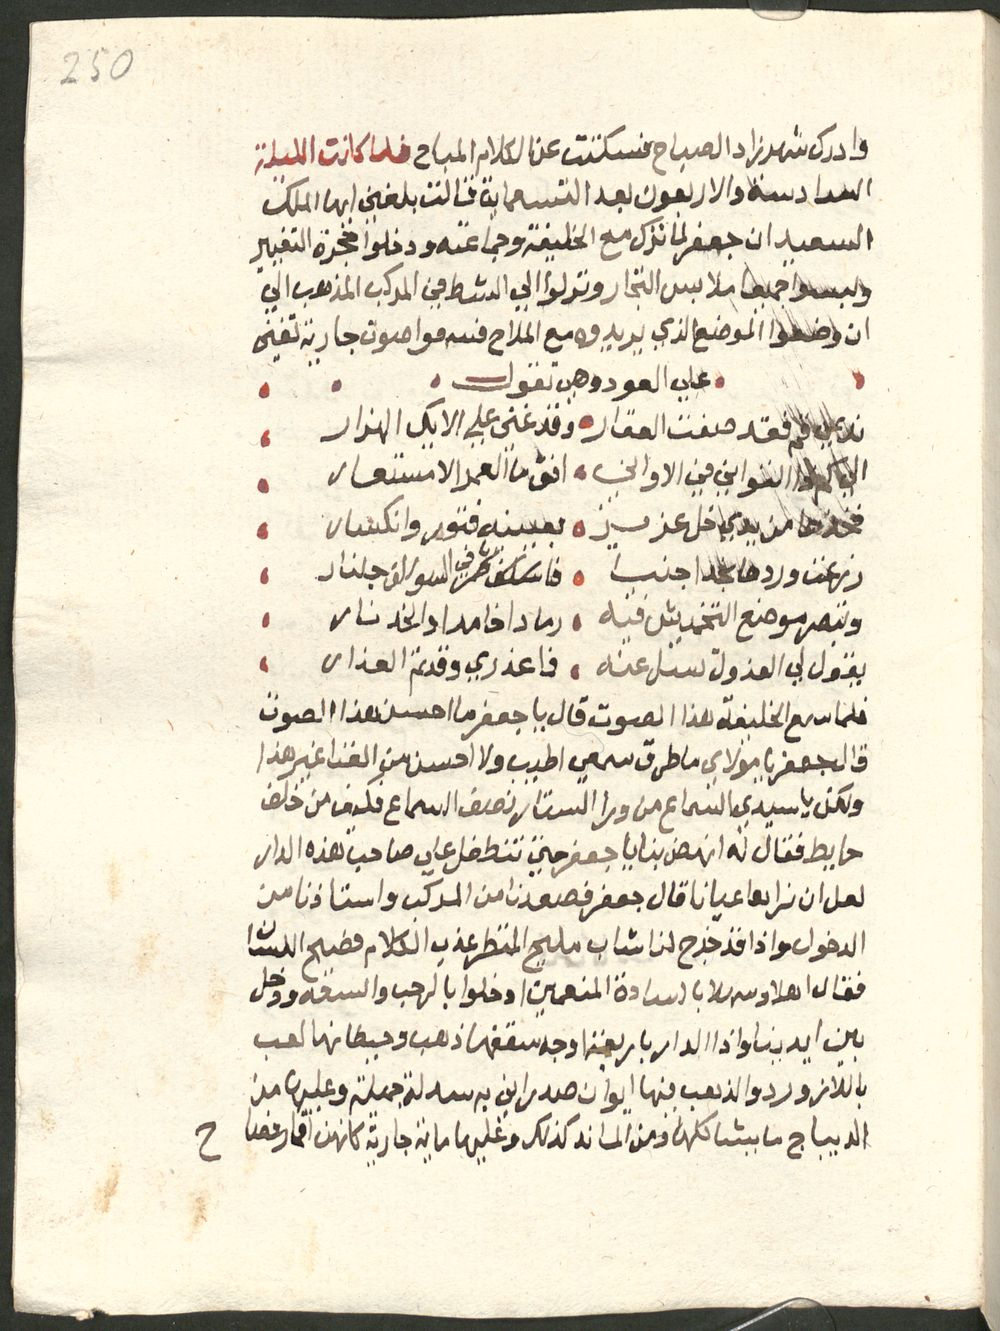 250
وادرك شهرزاد الصباح فسكتت عن الكلام المباح فلما كانت الليلة
السادسة والاربعون بعد التسعماية قالت بلغني ايها الملك
السعيد ان جعفر لما نزل مع الخليفة وجماعته ودخلوا حجرة التغيير
ولبسوا جميعا ملابس التجار ونزلوا الي الشط في المركب المذهب الي
ان وضعوا الموضع الذي يريدوه مع الملاح فسمعوا صوت جارية تغني
علي العود وهي تقول
نديمي قم فقد صفت العقار وقد غني علي الايك الهزار
الي كم ذا التواني في الاواني افق ما العمر الا مستعار
فخذها من يدي خل عزيز بعينيه فتور وانكسار
زرعت وردها بخدا جنيا في السوالف جلنار
وتبصر موضع التخميش فيه رمادا خامدا والخد نار
يقول لي العذول تسل عنه فما عذري وقد نم العذار
فلما سمع الخليفة هذا الصوت قال يا جعفر ما احسن هذا الصوت
قال جعفر يا مولاي ما طرق سمعي اطيب ولا احسن من الغنا غير هذا
ولكن يا سيدي السماع من ورا الستار نصف السماع فكيف من خلف
حايط فقال له انهض بنا يا جعفر حتي نتطفل علي صاحب هذه الدار
لعل ان نراها عيانا قال جعفر فصعدنا من المركب واستاذنا من
الدخول واذا قد خرج لنا شاب مليح المنظر عذب الكلام فصيح اللسان
فقال اهلا وسهلا يا سادة المنعمين ادخلوا بالرحب والسعه ودخل
بين ايدينا واذا الدار باربعة اوجه سقفها ذهب وحيطانها لعب
باللازورد والذهب فيها ايوان صدراني به سدلة جميلة وعليها من
الديباج ما يشاكلها ومن المساند كذلك وعليها ماية جارية كانهن اقمار فصا
ح